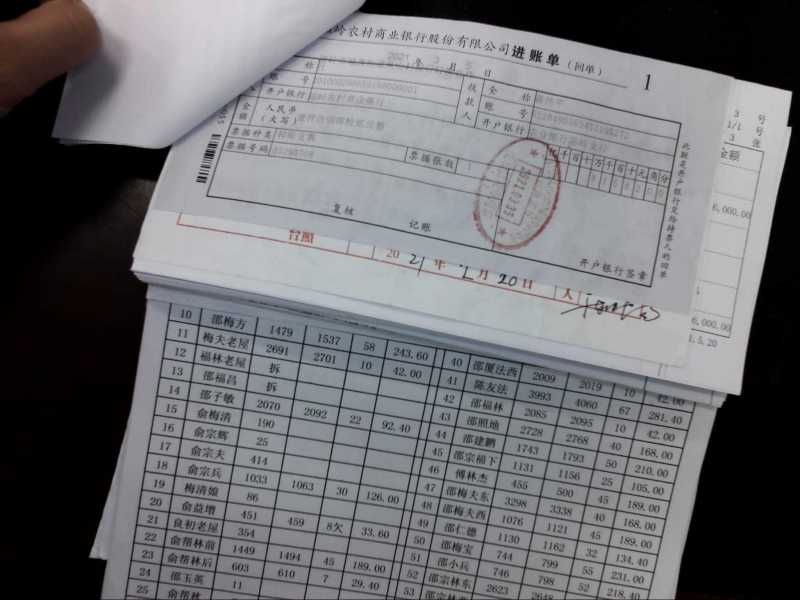 岭农村商业银行股份有限公司 进账单 (回单) 1
年 月 日
全称
账号
开户银行
收款人
全称
账号
开户银行
金额
人民币
(大写)
千百十万千百十元角分
票据种类
票据张数
票据号码
复核 记账
开户银行签章
此联是开户银行交给持票人的回单
3 号
1/1 号
3 张
金额
6,000.00
6,000.00
1.5.20
台照
2021年 月20日
10 邵梅方 1479 1537 58 243.60
11 梅夫老屋 2691 2701 10 42.00
12 福林老屋 拆
13 邵福昌 拆
14 邵子敏 2070 2092 22 92.40
15 俞梅清 190
16 俞宗辉 25
17 俞宗夫 414
18 俞宗兵 1033 1063 30 126.00
19 梅清娘 86
20 俞益增 451 459 8欠 33.60
21 良初老屋 354
22 俞帮林前 1449 1494 45 189.00
23 俞帮林后 603 610 7 29.40
24 邵玉英 11
25 俞帮林
40 邵厦法西 2009 2019 10 42.00
41 陈友法 3993 4060 67 281.40
42 邵福林 2085 2095 10 42.00
43 邵照地 2728 2768 40 168.00
44 邵建鹏 1743 1793 50 210.00
45 邵宗福下 1131 1156 25 105.00
46 傅林杰 455 500 45 189.00
47 邵梅夫东 3298 3338 40 168.00
48 邵梅夫西 1076 1121 45 189.00
49 邵仁德 1130 1162 32 134.40
50 邵梅宝 744 799 55 231.00
51 邵小兵 746 798 52 218.40
52 邵宗林东 2623 2648
53 邵宗林